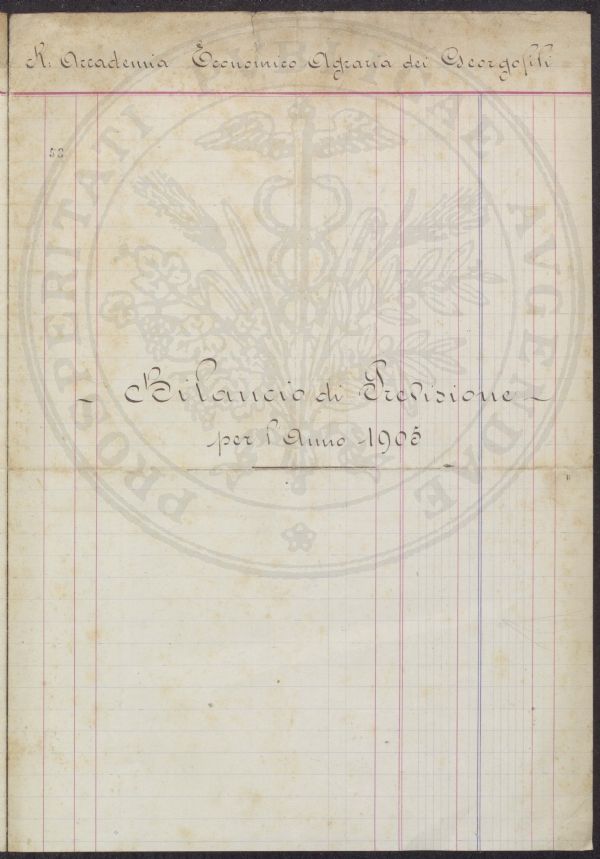 R. Accademia Economico Agraria dei Georgofili
58
PROSPERITATI PUBLICAE AUGENDAE
- Bilancio di Previsione -
per l'Anno 1905